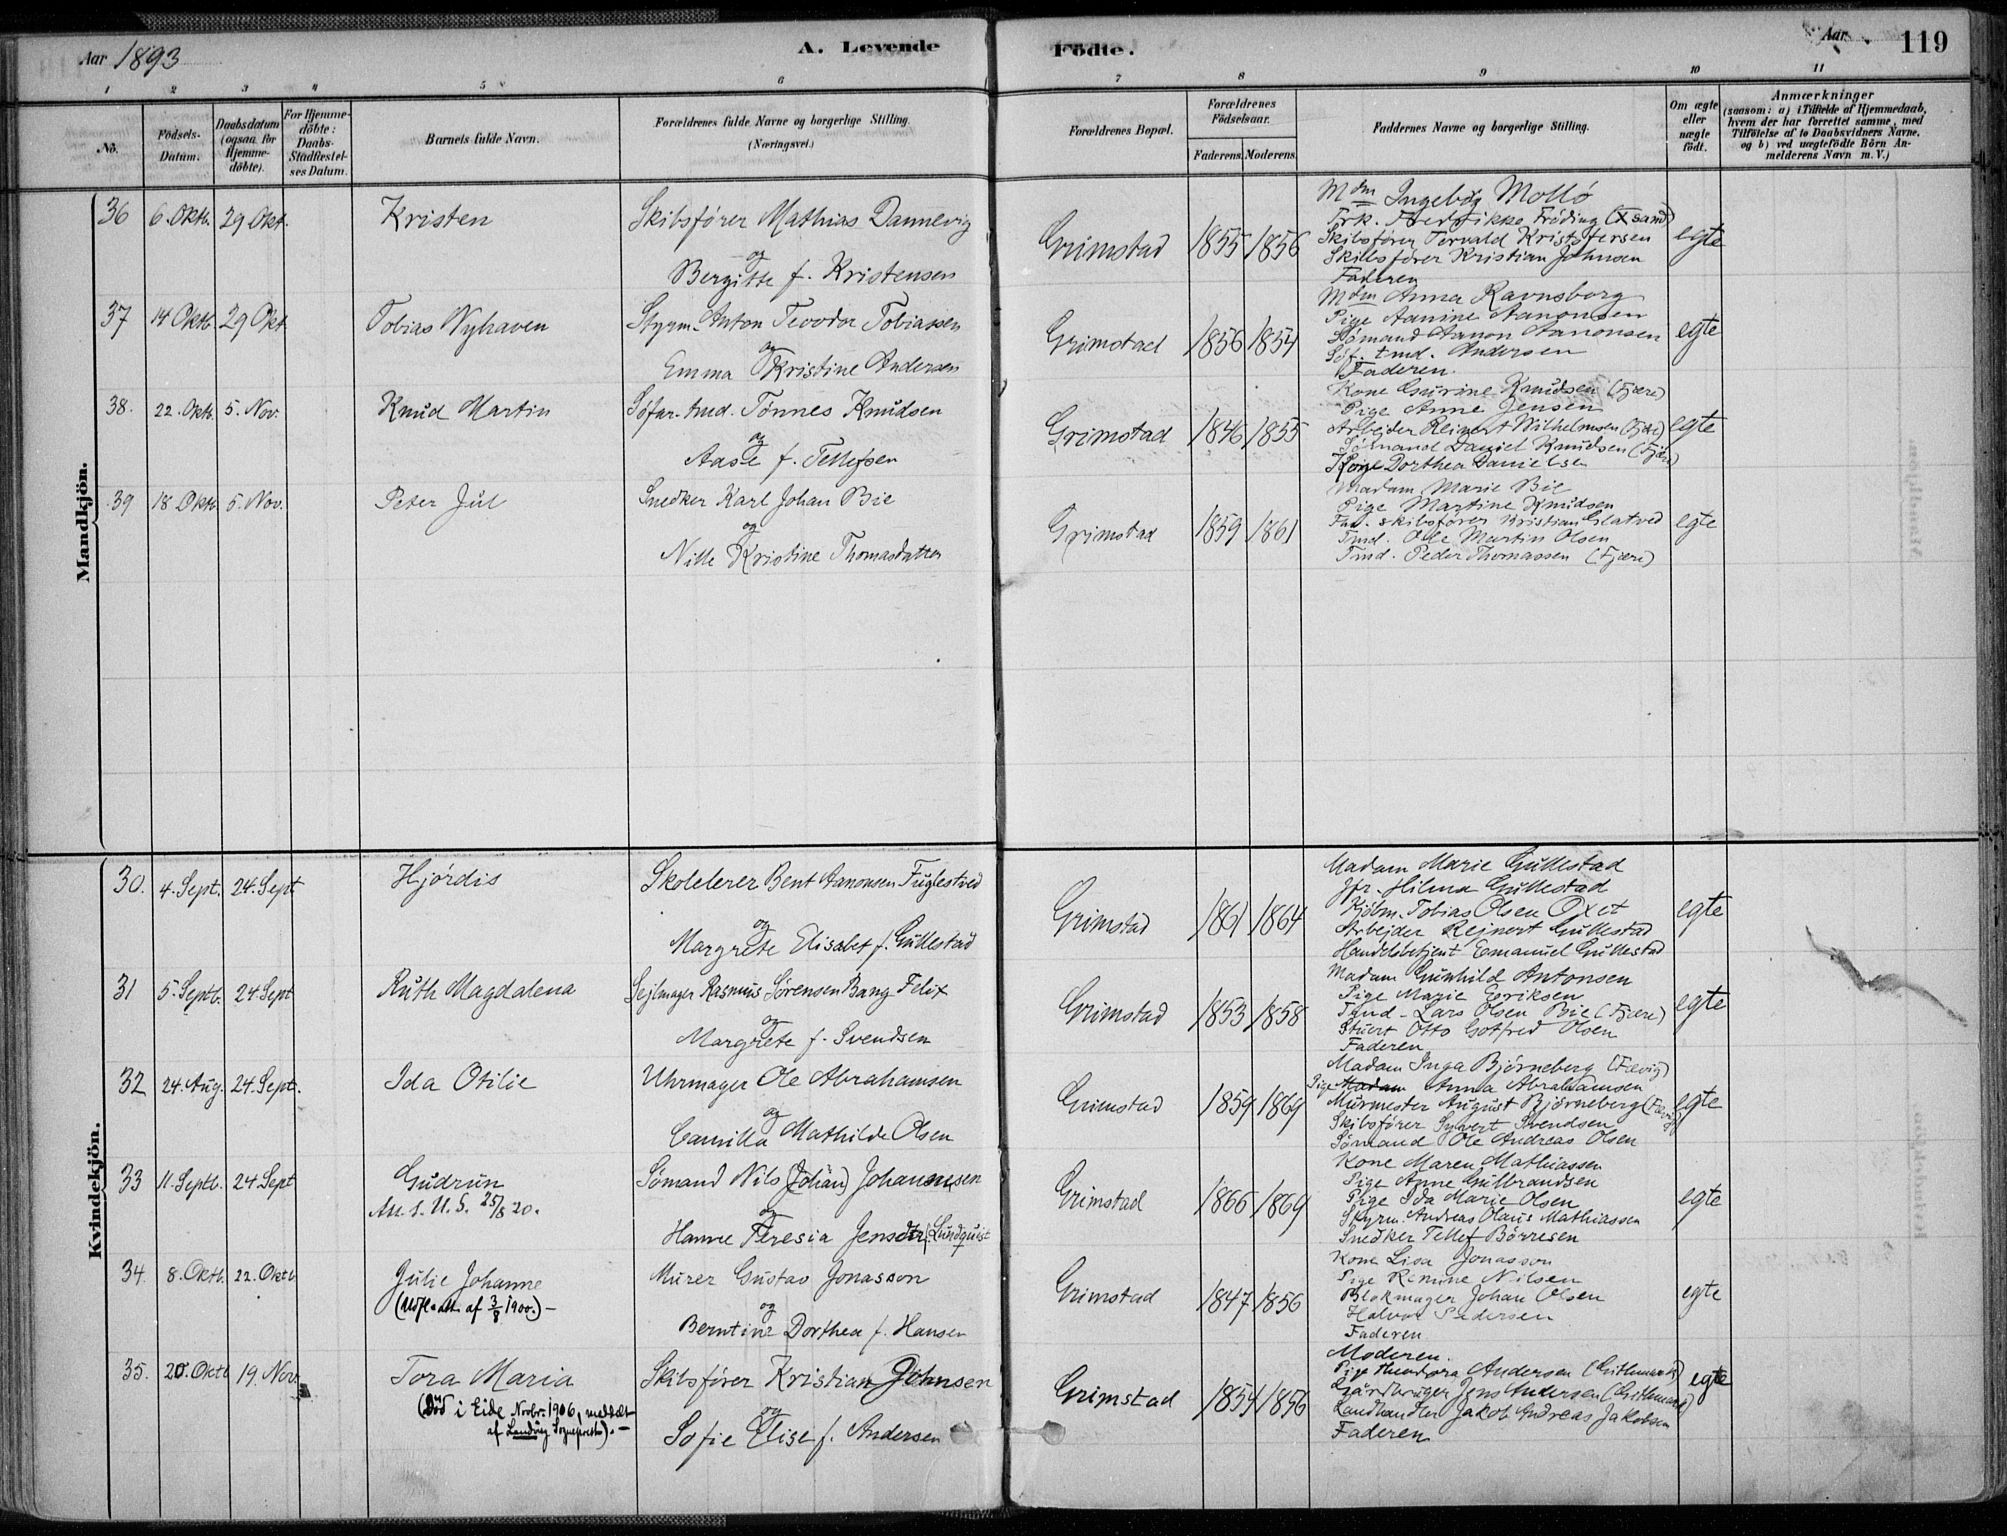 Aar 1893
A. Levende
Födte.
Aar
119
1 2 3 4 5 6 7 8 9 10 11
No.
Födsels-
Datum.
Daabsdatum
(ogsaa for
Hjemme-
döbte).
For Hjemme-
döbte:
Daabs-
Stadfæstel-
ses Datum.
Barnets fulde Navn.
Forældrenes fulde Navne og borgerlige Stilling
(Næringsvei.)
Forældrenes Bopæl.
Forældrenes
Födselsaar.
Faderens. Moderens.
Faddernes Navne og borgerlige Stilling.
Om ægte
eller
uægte
födt.
Anmærkninger
(saasom: a) i Tilfælde af Hjemmedaab,
hvem der har forrettet samme, med
Tilföielse af to Daabsvidners Navne,
og b) ved uægtefödte Börn An-
melderens Navn m. V.)
Mandkjön.
36 6. Oktb. 29 Okt. Kristen
Skibsfører Mathias Dannevig
og
Bergitte f. Kristensen
Grimstad 1855 1856
Mdm Ingeborg Mollö
Frk. Fredrikke Fröding (X sand)
Skibsfører Torvald Kristofersen
Skibsfører Kristian Johnsen
Faderen
egte
37 14 Oktb. 29 Okt. Tobias Nyhaven
Styrm. Anton Teodor Tobiassen
og
Emma Kristine Andersen
Grimstad 1856 1854
Mdm Anna Ravnsborg
Pige Aanine Aanonsen
Sømand Aanon Aanonsen
Söf. tmd. Andersen
Faderen.
egte
38. 22. Oktb. 5. Nov. Knud Martin
Söfar. tmd. Tönnes Knudsen
og
Aase f. Tellefsen
Grimstad 1846 1855
Kone Gurine Knudsen (Fjære)
Pige Anne Jensen
Arbejder Reinert Wilhelmsen (Fjære)
Sømand Daniel Knudsen (Fjære)
Kone Dorthea Danielsen
egte
39 18 Oktb. 5. Nov. Peter Jul
Snedker Karl Johan Bie
og
Nille Kristine Thomasdatter
Grimstad 1859 1861
Madam Marie Bie
Pige Martine Knudsen
Fhv. skibsfører Kristian Glatved
Tmd. Ole Martin Olsen
Tmd. Peder Thomassen (Fjære)
egte
Kvindekjön.
30. 4. Sept. 24. Sept Hjördis
Skolelerer Bent Aanonsen Fuglestved
og
Margrete Elisabet f. Gullestad
Grimstad 1861 1864
Madam Marie Gullestad
Jfr. Hilma Gullestad
Kjöbm. Tobias Olsen Oxet
Arbejder Rejnert Gullestad
Handelsbetjent Emanuel Gullestad
egte
31 5. Septb. 24 Sept Ruth Magdalena
Sejlmager Rasmus Sörensen Bang Felix
og
Margrete f. Svendsen
Grimstad 1853 1858
Madam Gunhild Antonsen
Pige Marie Eeriksen
Tmd. Lars Olsen Bie (Fjære)
Stuert Otto Gotfred Olsen
Faderen
egte
32 24. Aug. 24 Sept. Ida Otilie
Uhrmager Ole Abrahamsen
og
Camilla Mathilde Olsen
Grimstad 1859 1869
Madam Inga Björneberg (Fævig)
Pige Madam Anna Abrahamsen
Murmester August Björneberg (Fævig)
Skibsfører Syvert Svendsen
Sømand Ole Andreas Olsen
egte
33 11. Septb. 24 Sept Gudrun
Att. t. U. S. 25/8 20.
Sømand Nils (Johan) Johannesen
og
Hanne Teresia Jensdtr f. Lundquist
Grimstad 1866 1869
Kone Maren Mathiassen
Pige Anne Gulbrandsen
Pige Ida Marie Olsen
Styrm. Andreas Olaus Mathiassen
Snedker Tellef Börresen
egte
34. 8. Oktb. 22. Oktb Julie Johanne
(Udfl. att. af 3/8 1900.) -
Murer Gustav Jonasson
og
Berntine Dorthea f. Hansen
Grimstad 1847 1856
Kone Lisa Jonasson
Pige Remine Nilsen
Blokmager Johan Olsen
Halvor Pedersen
Faderen
egte
35. 20. Oktb 19. Nov. Tora Maria
(Död i Eide Novbr. 1906, meddelt
af Landvig Sogneprest). -
Skibsfører Kristian Johnsen
og
Sofie Elise f. Andersen
Grimstad 1854 1856
Moderen.
Pige Theodora Andersen (Githmark)
Gårdbruger Jens Andersen (Githmark)
Landhandler Jakob Andreas Jakobsen
Faderen
egte